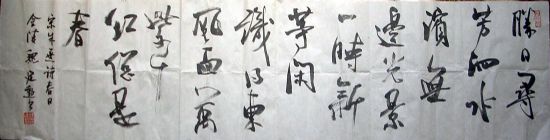 勝日尋
芳泗水
濱無
邊光景
一時新
等閑
識得東
風面萬
紫千
紅總是
春
宋朱熹詩春日
金陵